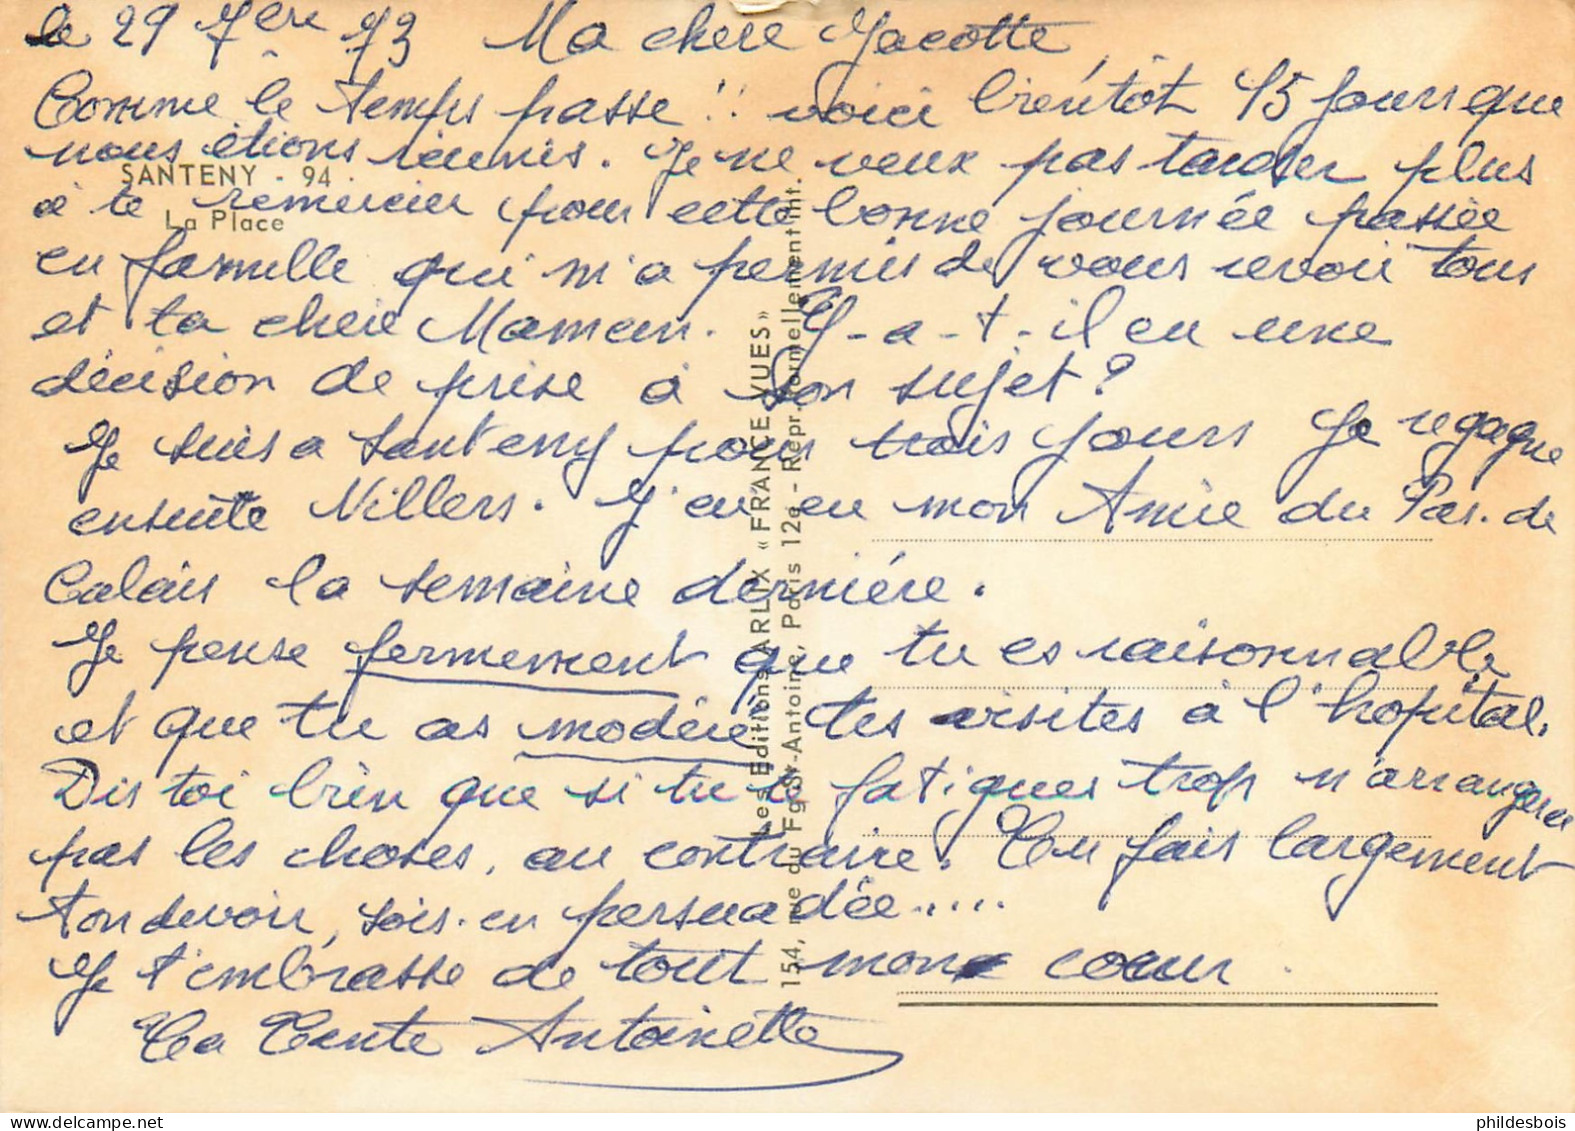 le 29 7bre 73 Ma chère Jacotte,
Comme le temps passe !! voici bientôt 15 jours que
nous étions réunis. Je ne veux pas tarder plus
SANTENY - 94
à te remercier pour cette bonne journée passée
La Place
en famille qui m'a permis de vous revoir tous
et ta chère Maman. Y-a-t-il eu une
décision de prise à son sujet ?
Je suis à Santeny pour trois jours Je regagne
ensuite Villers. J'ai eu mon Amie du Pas. de
Calais la semaine dernière.
Je pense fermement que tu es raisonnable
et que tu as modéré tes visites à l'hôpital.
Dis toi bien que si tu te fatigues trop n'arrangera
pas les choses, au contraire. Tu fais largement
ton devoir, sois-en persuadée.....
Je t'embrasse de tout mon coeur.
Ta Tante Antoinette
Les Editions ARLIX « FRANCE VUES »
154, rue du Fg St-Antoine, Paris 12e - Repr. formellement int.
phildesbois